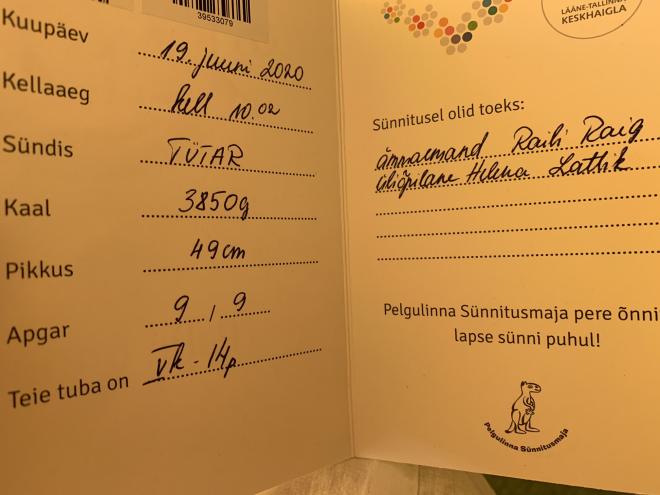 39533079
Kuupäev 19. juuni 2020
Kellaaeg kell 10.02
Sündis TÜTAR
Kaal 3850g
Pikkus 49cm
Apgar 9 / 9
Teie tuba on VK - 14p
LÄÄNE-TALLINNA
KESKHAIGLA
Sünnitusel olid toeks:
ämmaemand Raili Raig
üliõpilane Helena Lattik
Pelgulinna Sünnitusmaja pere õnni
lapse sünni puhul!
Pelgulinna Sünnitusmaja